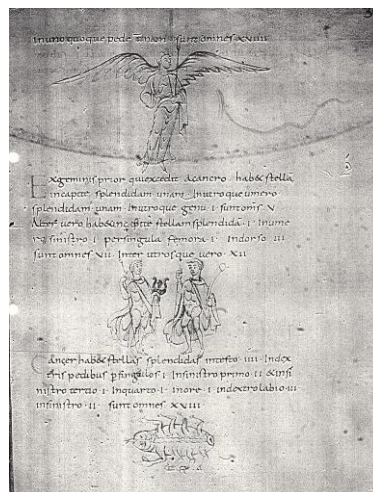 in uno quoque pede i fiunt omnes xviiii
Exgeminis prior qui excedit a cancro hab& stella
in capite splendidam unam In utroque umero
splendidam unam In utroque genu i sunt omns v
Alter vero hab& in capite stellam splendida i In ume
ro sinistro i per singula femora i In dorso iii
sunt omnes vii Inter utrosque vero xii
Cancer hab& stellas splendidas in testo iiii In dex
tris pedibus p singulos i In sinistro primo ii & in si
nistro tertio i In quarto i In ore i In dextro labio iii
in sinistro ii sunt omnes xviii